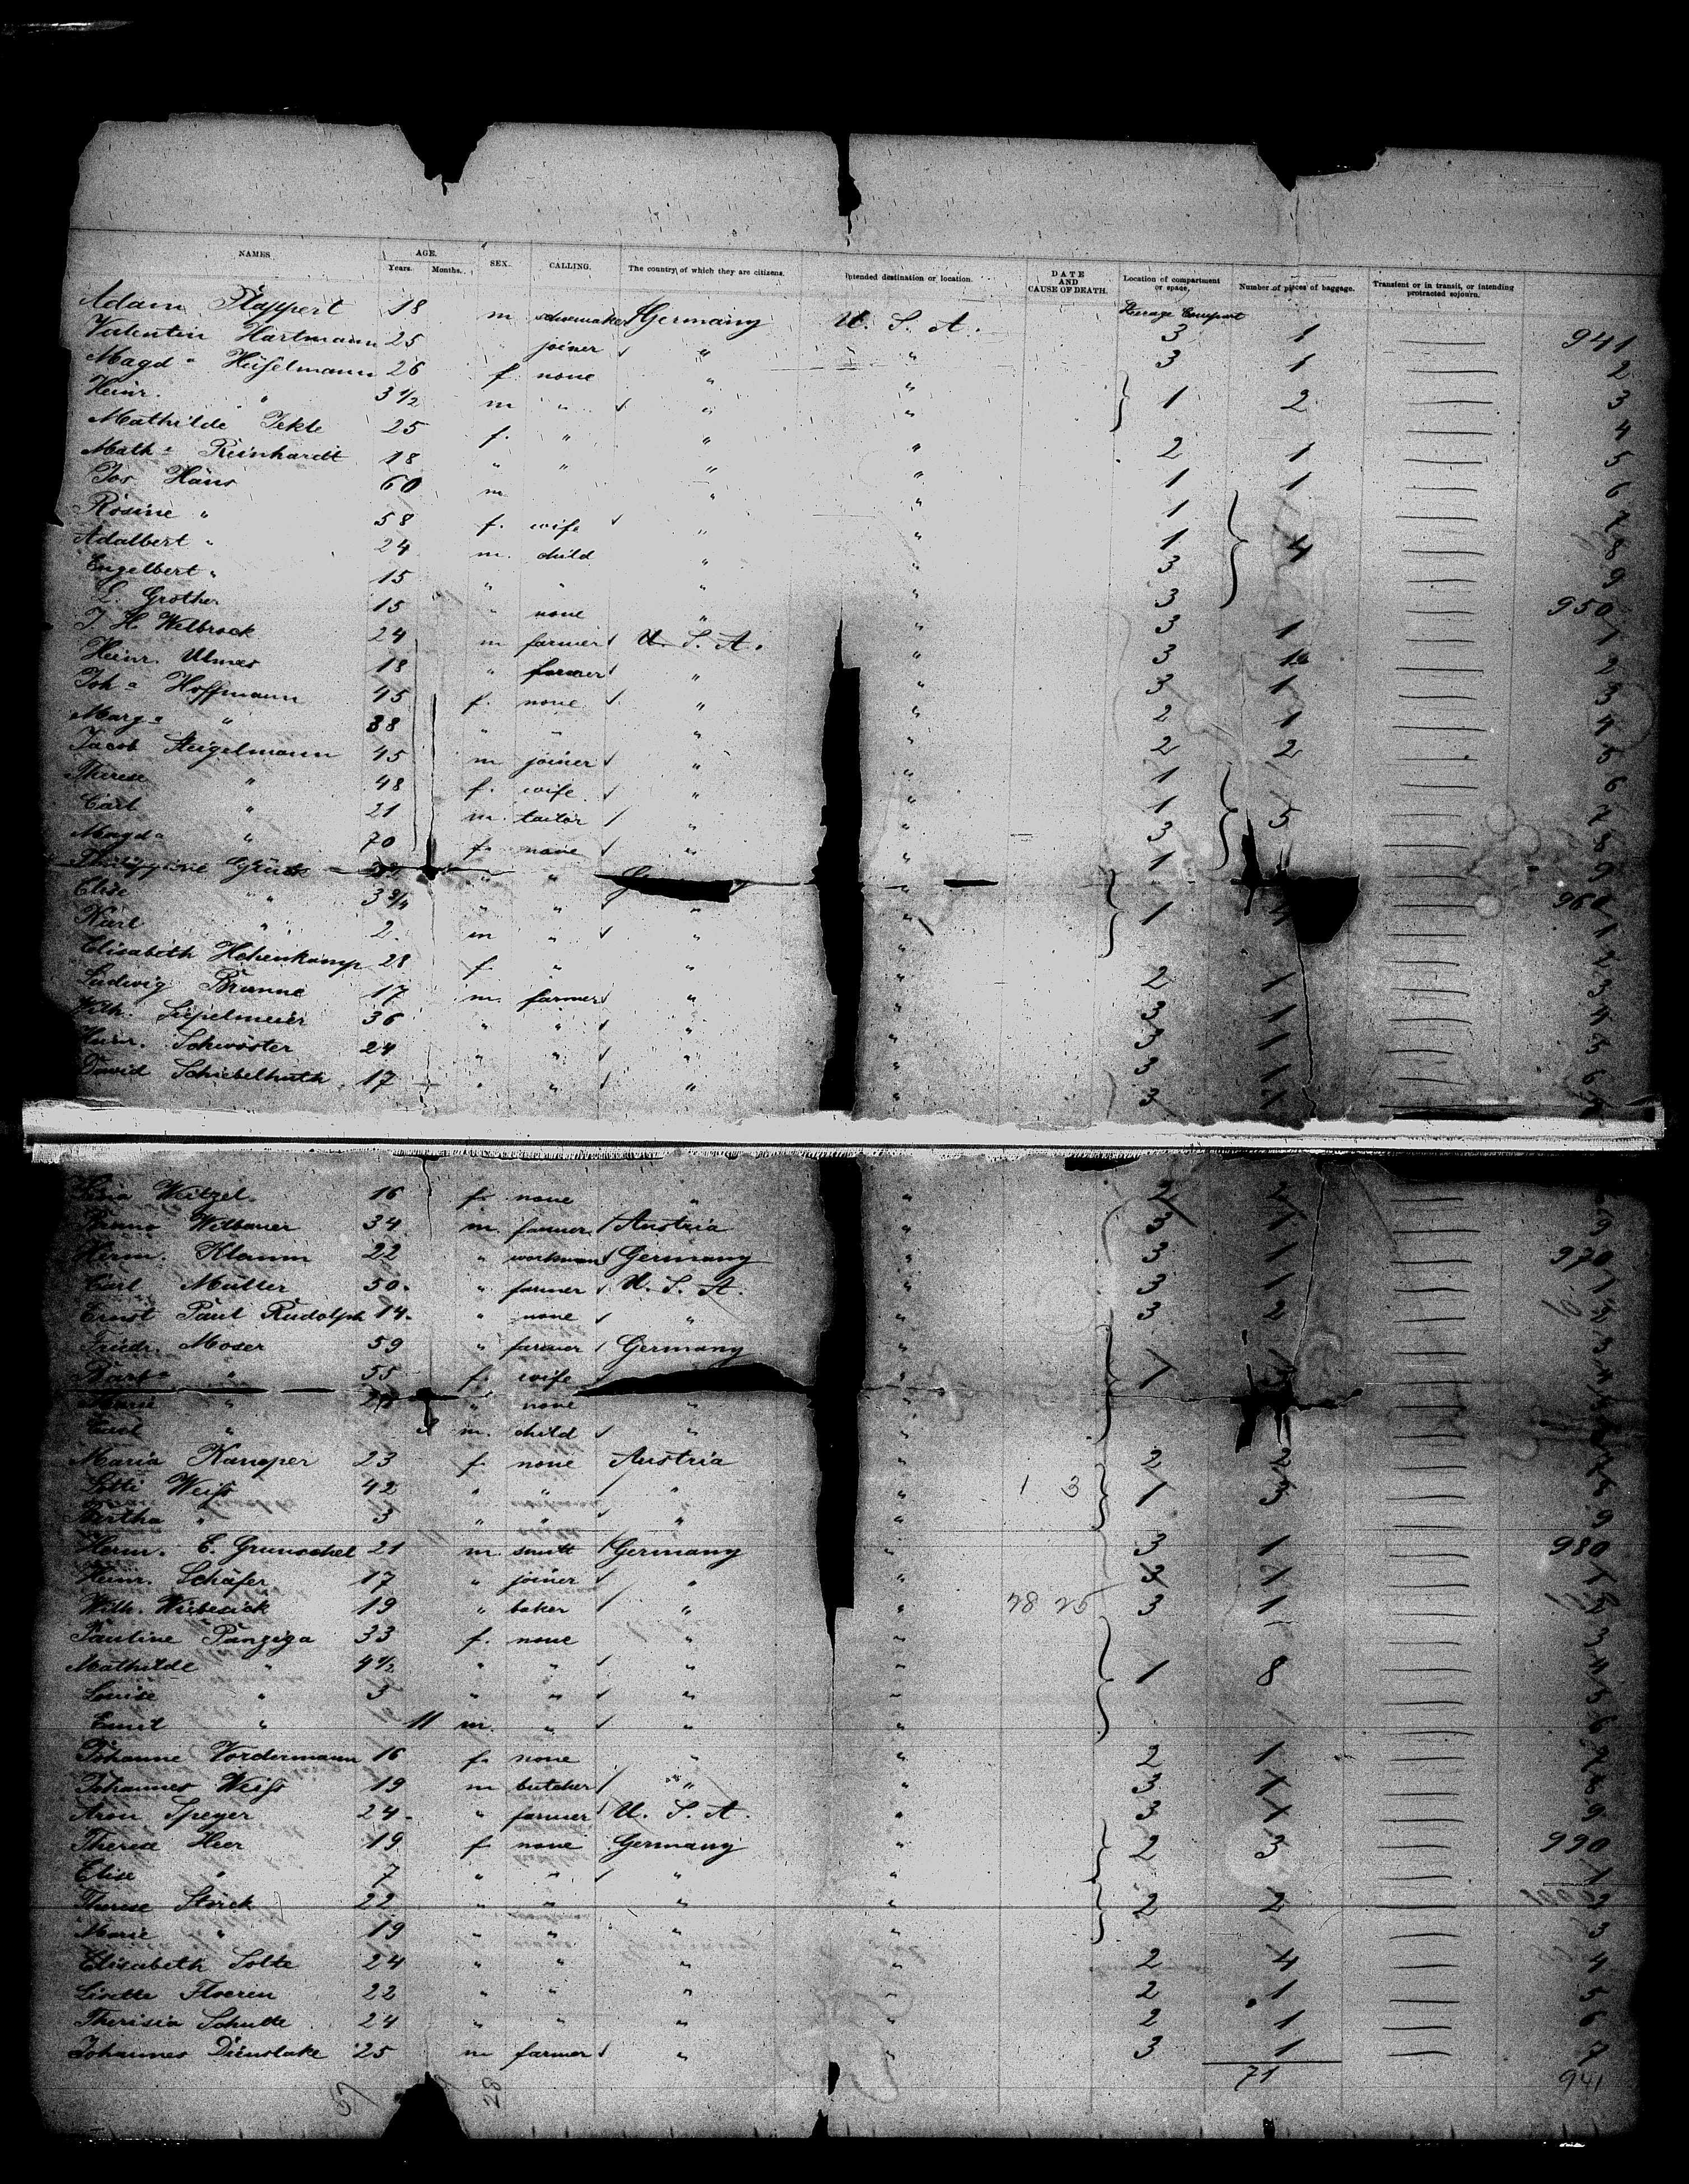 NAMES. AGE. SEX. CALLING. The country of which they are citizens. Intended destination or location. DATE AND CAUSE OF DEATH. Location of compartment or space. Number of pieces of baggage. Transient or in transit, or intending protracted sojourn.
Years. Months.
Adam Plappert 18 m Germany U. S. A. 3 1 941
Valentin Hartmann 25 " joiner " " 3 1 2
Magda 26 f. none " " 3
Heinr. " 3 1/2 m " " " 1 2 4
Mathilde 25 f. " " " 2 1 5
Math a Reinhardt 18 " " " " 1 1 6
Jos Hans 60 m " " 1 7
Rosine " 58 f. wife " " 1 8
Adalbert " 24 m. child " " 3 4 9
Engelbert " 15 " " " " 3 950
L. Grother 15 " none " " 3 1 1
J. H. Welbrock 24 m farmer U. S. A. " 3 2
Heinr. Ulmer 18 " farmer " " 3 1 3
Joh a Hoffmann 45 f. none " " 2 1 4
Marg a " 38 " " " " 2 2 5
Jacob Stiegelmann 45 m joiner " " 1 6
Therese " 48 f. wife " " 1 5 7
Carl " 21 m. tailor " " 3 8
Magda " 70 f. none " " 1 9
Philippine " " 960
Elise " 3 3/4 " " " " 1 1
Karl " 2 m " " " 2
Elisabeth Hohenkamp 28 f. " " " 2 1 3
Ludwig Brunne 17 m. farmer " " 3 1 4
Wilh. Siepelmeier 36 " " " " 3 1 5
Heinr. Schwoster 24 " " " " 3 1 6
David Schiebelhuth 17 " " " " 3 1 7
Weitzel 16 f. none " " 2 2
Bruno Witbauer 34 m. farmer Austria " 3 1 9
Herm. Klamm 22 " workman Germany " 3 1 970
Carl Muller 50 " farmer U. S. A. " 3 1 1
Ernst Paul Rudolph 14 " none " " 3 2 2
Friedr. Moser 59 " farmer Germany " 3
Barb a " 55 f. wife " 1 4
Marie " " none " "
Carl " m. child " "
Maria Kamper 23 f. none Austria " 2 2
Lotti Weiss 42 " " " " 1 3 1 3
Bertha " 3 " " " " 9
Herm. E. Grunschel 21 m. smitt Germany " 3 1 980
Heinr. Schäfer 17 " joiner " " 3 1 1
Wilh. Wiebesick 19 " baker " " 28 25 3 1 2
Pauline Panziga 33 f. none " " 3
Mathilde " 4 1/2 " " " " 1 8 4
Louise " 3 " " " " 5
Emil " 11 m. " " " 6
Johanne Vordermann 16 f. none " " 2 1 7
Johannes Weiss 19 m butcher " " 3 1 8
Aron Speyer 24 " farmer U. S. A. " 3 1 9
Therese Heer 19 f. none Germany " 2 3 990
Elise " 7 " " " " 1
Therese Storck 22 " " " " 2 2 2
Marie " 19 " " " " 3
Elisabeth Solte 24 " " " " 2 4 4
Lisette Floeren 22 " " " " 2 1 5
Therisia Schulte 24 " " " " 2 1 6
Johannes Dienslake 25 m farmer " " 3 1 7
71 941
28